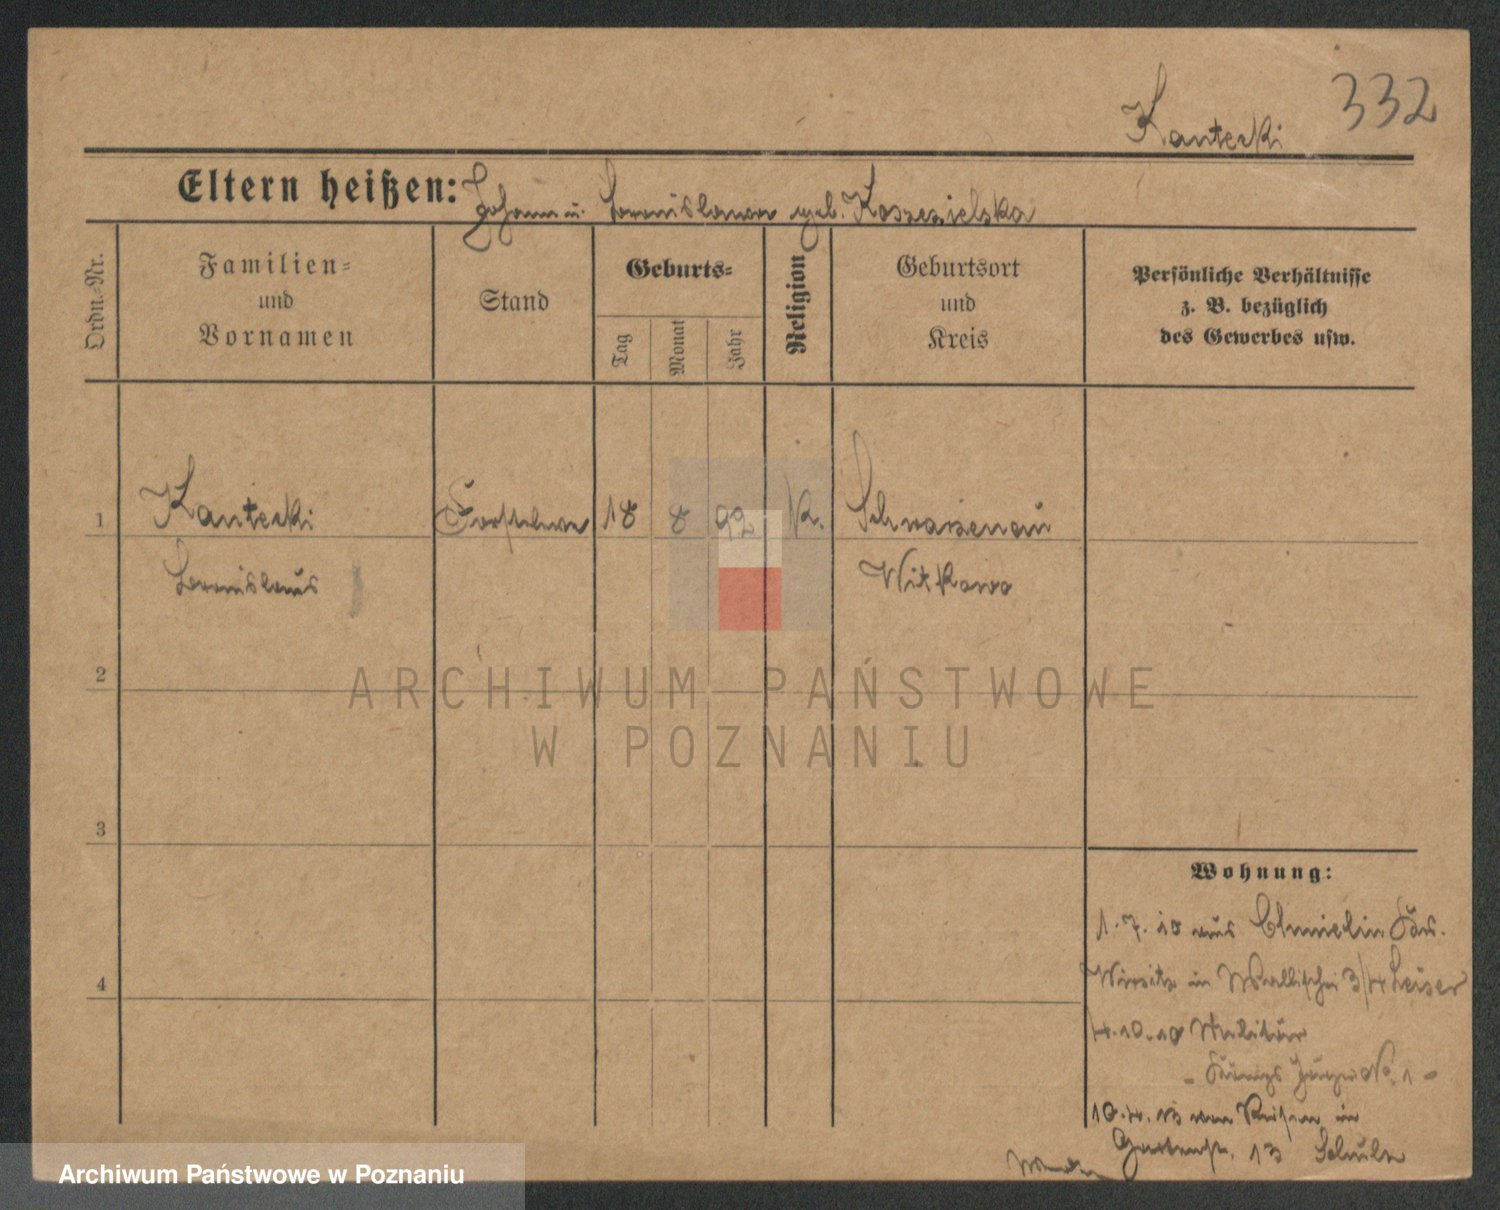 332
Kantecki
Eltern heißen: Johann u. Bronislawa geb. Koszczielska
Ordn.-Nr.
Familien-
und
Vornamen
Stand
Geburts-
Tag
Monat
Jahr
Religion
Geburtsort
und
Kreis
Persönliche Verhältnisse
z. B. bezüglich
des Gewerbes usw.
1 Kantecki 18 8 92 K. Schwarzenau
Bronislaus Witkowo
2
ARCHIWUM PAŃSTWOWE
W POZNANIU
3
Wohnung:
1.7.10 aus Chmielin
Wirsitz in Wallischei 3/4 Leiser
4.10.10 Militär
10.4.13 von Reisen in
Gartenstr. 13 Schulz
4
Archiwum Państwowe w Poznaniu